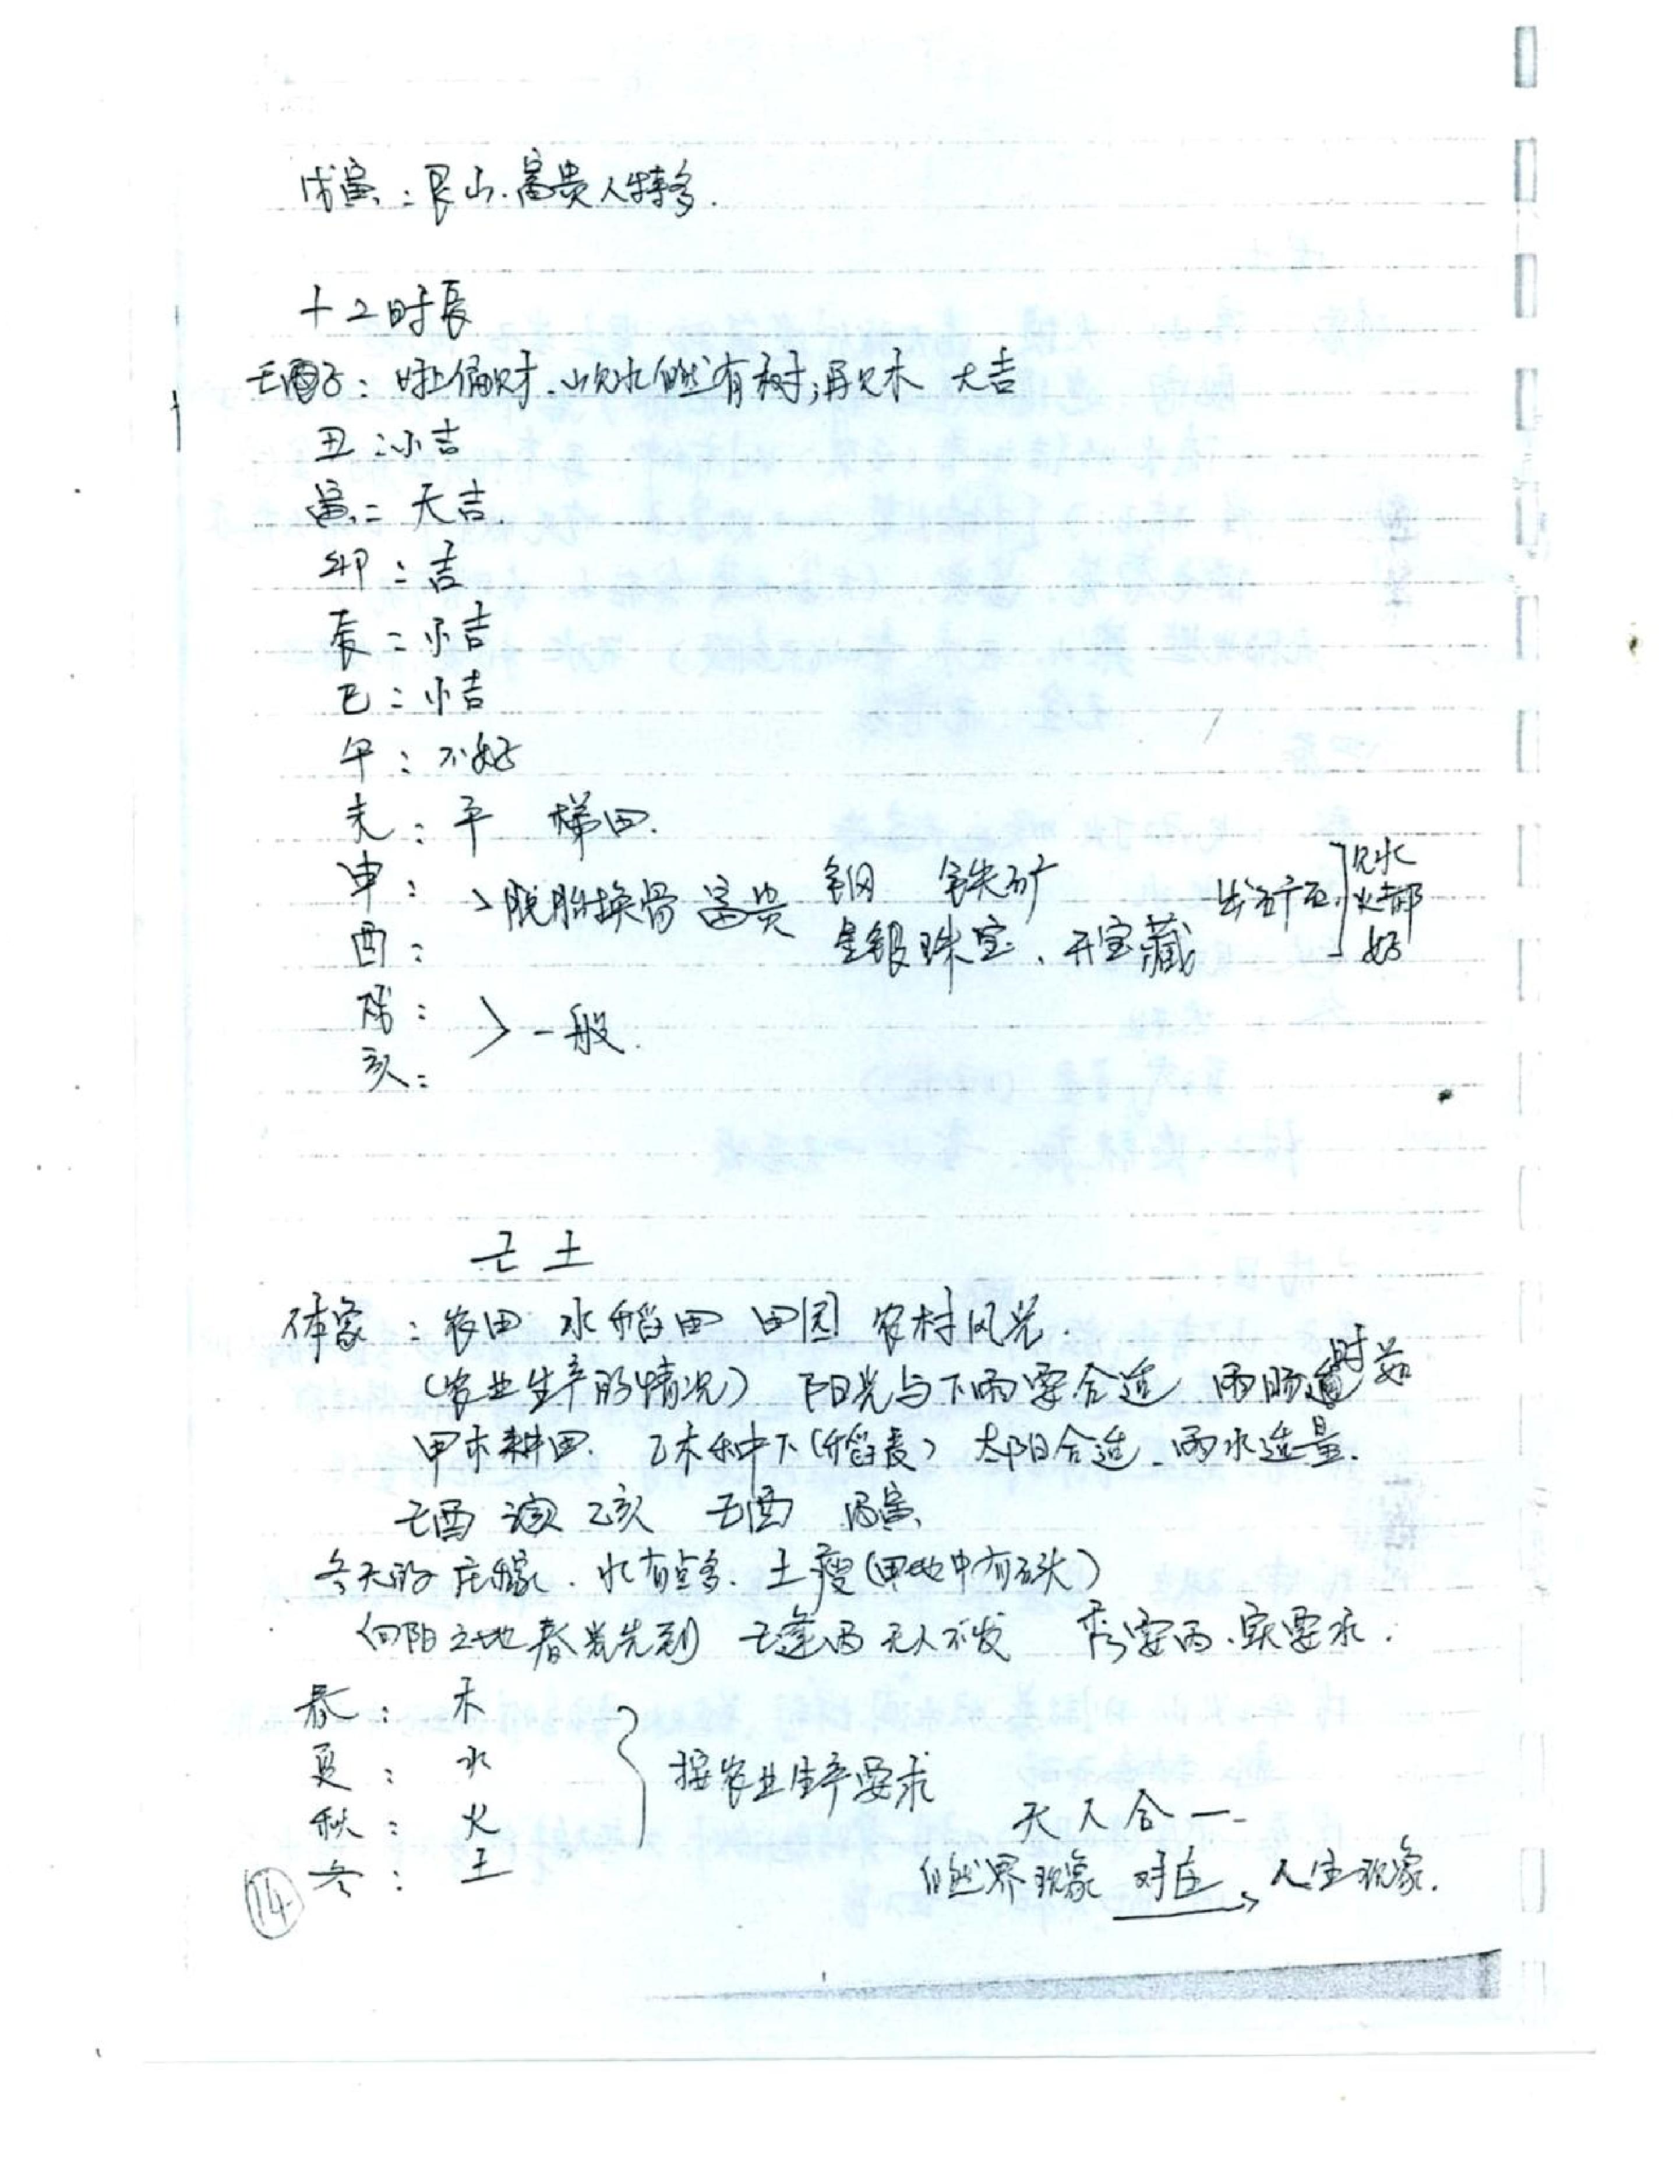 戊寅：艮山.富贵人特多.
十二时辰
壬子：时上偏财.山见水自然有树;再见木 大吉
丑：小吉
寅：大吉.
卯：吉
辰：小吉
巳：小吉
午：不好
未：平 梯田.
申：
酉：
>脱胎换骨 富贵 钢 铁矿
金银珠宝、开宝藏
出矿石 见水火都好
戌：
亥：
>一般.
己土
体象：农田 水稻田 田园 农村风光.
(农业生产的情况) 阳光与下雨要合适 雨旸时若
甲木耕田. 乙木种下(稻麦) 太阳合适.雨水适量.
己酉 乙亥 己酉 丙寅
冬天的庄稼.水有点多.土瘦(田地中有石头)
向阳之地春光先到 己逢丙无人不发 秀要丙.实要水.
春：木
夏：水
秋：火
冬：土
按农业生产要求
天人合一
自然界现象 对应 人生现象.
14